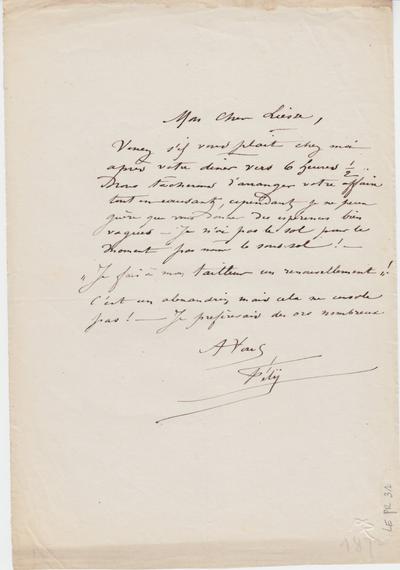 Mon cher Liesse,
Venez s'il vous plait chez moi
après votre diner vers 6 heures 1/2 ..
Nous tacherons d'arranger votre affaire
tout en causant, cependant je ne peux
guère que vous donner des espérances bien
vagues — Je n'ai pas le sol pour le
moment pas même le sous-sol ! —
"Je fais à mon tailleur un renouvellement" !
C'est un alexandrin mais cela ne console
pas ! — Je préfèrerais des ors nombreux
A Vous
LE PR 32
187